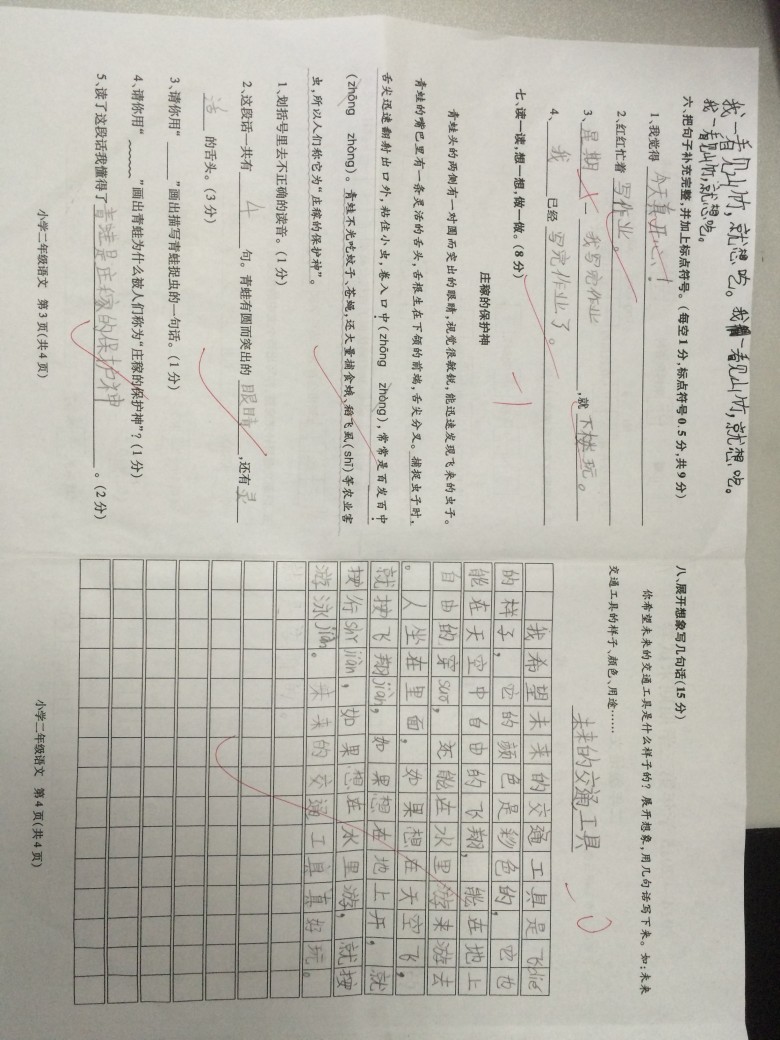 我一看见山竹，就想吃。我一看见山竹，就想吃。
我一看见山竹，就想吃。
六、把句子补充完整，并加上标点符号。（每空1分，标点符号0.5分，共9分）
1、我觉得 今天真开心！
2、红红忙着 写作业。
3、星期一 我写完作业 ，就 下楼玩。
4、 我 已经 写完作业了。
七、读一读，想一想，做一做。（8分）
庄稼的保护神
青蛙头的两侧有一对圆而突出的眼睛，视觉很敏锐，能迅速发现飞来的虫子。
青蛙的嘴巴里有一条灵活的舌头，舌根生在下颌的前端，舌尖分叉。捕捉虫子时，
舌尖迅速翻射出口外，粘住小虫，卷入口中(zhōng zhòng)，常常是百发百中
(zhōng zhòng)。青蛙不光吃蚊子、苍蝇，还大量捕食蛾、稻飞虱(shī)等农业害
虫，所以人们称它为“庄稼的保护神”。
1、划括号里去不正确的读音。（1分）
2、这段话一共有 4 句，青蛙有圆而突出的 眼睛 ，还有 灵
活 的舌头。（3分）
3、请你用“ ”画出描写青蛙捉虫的一句话。（1分）
4、请你用“ ”画出青蛙为什么被人们称为“庄稼的保护神”？（1分）
5、读了这段话我懂得了 青蛙是庄稼的保护神 。（2分）
小学二年级语文 第3页（共4页）
八、展开想象写几句话（15分）
你希望未来的交通工具是什么样子的？展开想象，用几句话写下来。如：未来
交通工具的样子、颜色、用途……
未来的交通工具
我希望未来的交通工具是飞dié
的样子，它的颜色是彩色的，它也
能在天空中自由的飞翔，能在地上
自由的穿suō，还能在水里游来游去
。人坐在里面，如果想在天空飞，
就按飞翔jiàn，如果想在地上开，就
按行shǐ jiàn，如果想在水里游，就按
游泳jiàn。未来的交通工具真好玩。
小学二年级语文 第4页（共4页）